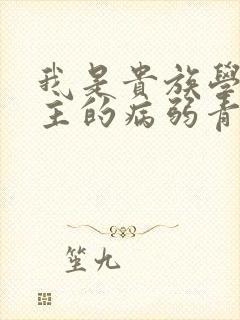 我是貴族學
主的病弱青
笙九